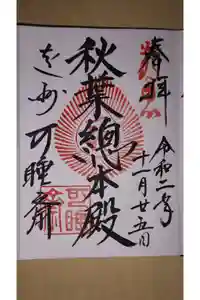 奉拝
令和二年
十一月廿五日
秋葉總本殿
遠州
可睡斎
可睡斎